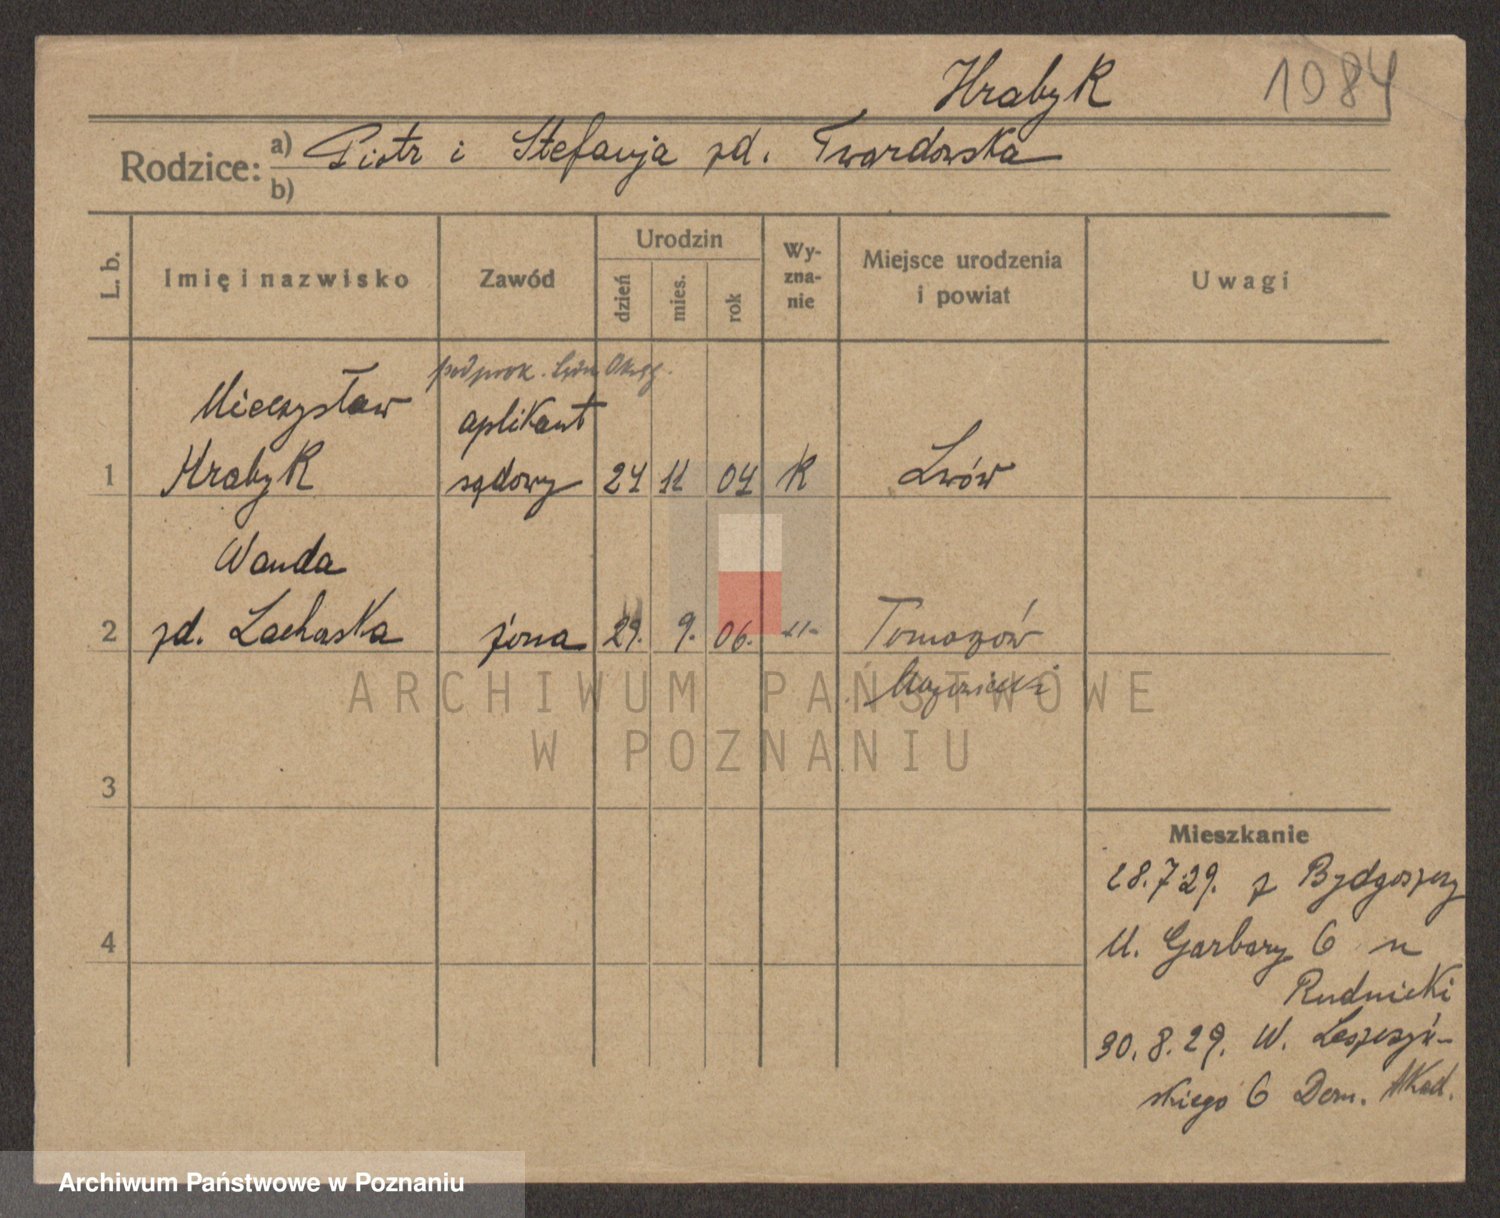 Hrabyk 1084
Rodzice: a) Piotr i Stefanja zd. Twardowska
b)
L. b. Imię i nazwisko Zawód Urodzin dzień mies. rok Wyznanie Miejsce urodzenia i powiat Uwagi
podprok. Sądu Okręg.
Mieczysław aplikant
1 Hrabyk sądowy 24 11 04 K Lwów
Wanda
2 zd. Lachowska żona 29. 9. 06. -11- Tomaszów
Mazowiecki
3
Mieszkanie
28.7.29. z Bydgoszczy
4 Ul. Garbary 6 u
Rudnicki
30. 8. 29. W. Leszczyń-
skiego 6 Dom. Akad.
ARCHIWUM PAŃSTWOWE
W POZNANIU
Archiwum Państwowe w Poznaniu